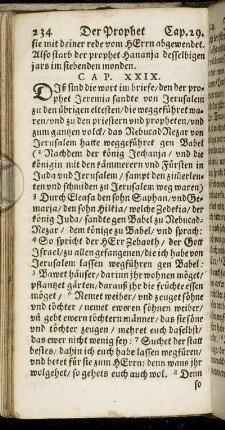 234 Der Prophet Cap. 29.
sie mit deiner rede vom HErrn abgewendet.
Also starb der prophet Hananja desselbigen
jars im siebenden monden.
CAP. XXIX.
Diß sind die wort im briefe / den der pro-
phet Jeremia sandte von Jerusalem
zu den übrigen eltesten / die weggeführet wa-
ren / und zu den priestern und propheten / und
zum gantzen volck / das NebucadNezar von
Jerusalem hatte weggeführet gen Babel
(² Nachdem der könig Jechanja / und die
königin mit den kämmerern und Fürsten in
Juda und Jerusalem / sampt den zimmerleu-
ten und schmiden zu Jerusalem weg waren)
³ Durch Eleasa den sohn Saphan / und Ge-
marja / den sohn Hilkia / welche Zedekia / der
könig Juda / sandte gen Babel zu Nebucad-
Nezar / dem könige zu Babel / und sprach:
⁴ So spricht der HErr Zebaoth / der Gott
Israel / zu allen gefangenen / die ich habe von
Jerusalem lassen wegführen gen Babel:
⁵ Bawet häuser / darinn ihr wohnen möget /
pflantzet gärten / daraus ihr die früchte essen
möget / ⁶ Nemet weiber / und zeuget söhne
und töchter / nemet ewern söhnen weiber /
uñ gebt ewern töchtern männer / das sie söne
und töchter zeugen / mehret euch daselbst /
das ewer nicht wenig sey: ⁷ Suchet der statt
bestes / dahin ich euch habe lassen wegfüren /
und betet für sie zum HErrn: denn wans ihr
wolgehet / so gehets euch auch wol. ⁸ Denn
so